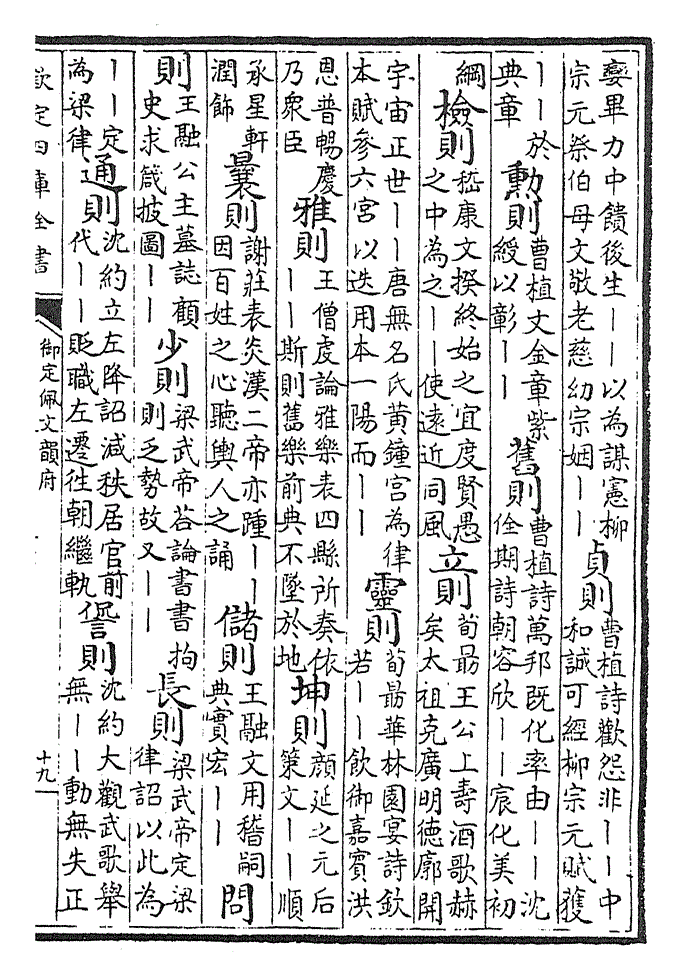 孌畢力中饋後生——以為謀憲柳
宗元祭伯母文敬老慈幼宗姻——
貞則
曹植詩歡怨非——中
和誠可經柳宗元賦獲
——於
典章
勲則
曹植文金章紫
綬以彰——
舊則
曹植詩萬邦既化率由——沈
佺期詩朝容欣——宸化美初
綱
檢則
嵇康文揆終始之宜度賢愚
之中為之——使遠近同風
立則
荀勗王公上壽酒歌赫
矣太祖克廣明德廓開
宇宙正世——唐無名氏黃鐘宮為律
本賦參六宮以迭用本一陽而——
靈則
荀勗華林園宴詩欽
若——飲御嘉賓洪
恩普暢慶
乃衆臣
雅則
王僧虔論雅樂表四縣所奏依
——斯則舊樂前典不墜於地
坤則
顔延之元后
策文——順
承星軒
潤飾
曩則
謝莊表炎漢二帝亦踵——
因百姓之心聽輿人之誦
儲則
王融文用稽嗣
典實宏——
問
則
王融公主墓誌顧
史求箴披圖——
少則
梁武帝荅論書書拘
則乏勢故又——
長則
梁武帝定梁
律詔以此為
——定
為梁律
通則
沈約立左降詔減秩居官前
代——貶職左遷往朝繼軌
諐則
沈約大觀武歌舉
無——動無失正
欽定四庫全書
御定佩文韻府
十九